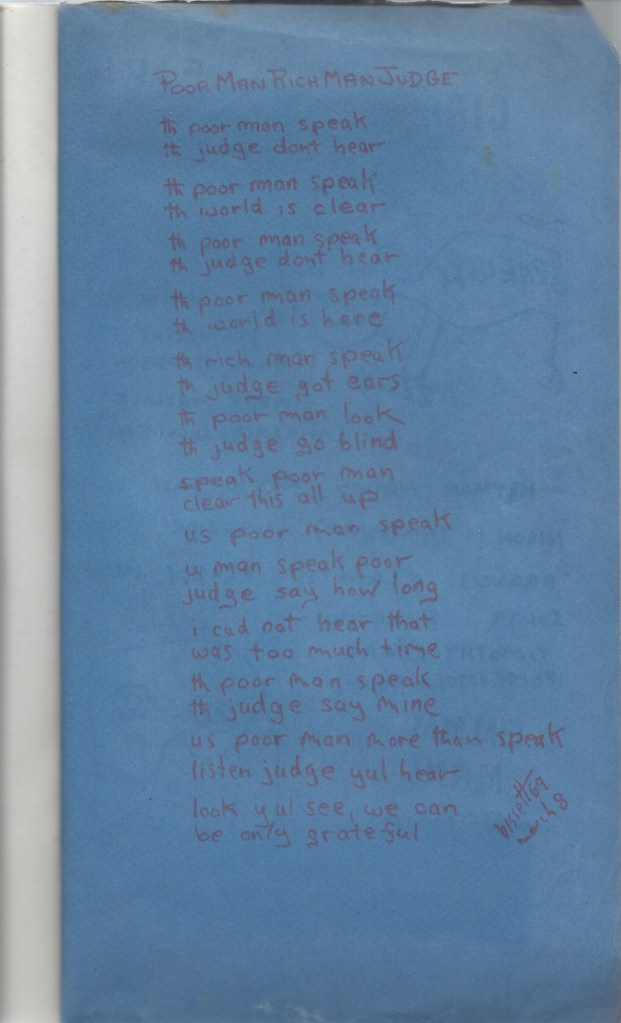 POOR MAN RICH MAN JUDGE
th poor man speak
th judge dont hear
th poor man speak
th world is clear
th poor man speak
th judge dont hear
th poor man speak
th world is here
th rich man speak
th judge got ears
th poor man look
th judge go blind
speak poor man
clear this all up
us poor man speak
u man speak poor
judge say how long
i cud not hear that
was too much time
th poor man speak
th judge say mine
us poor man more than speak
listen judge yul hear
look yul see, we can
be only grateful
bissett 69
march 8